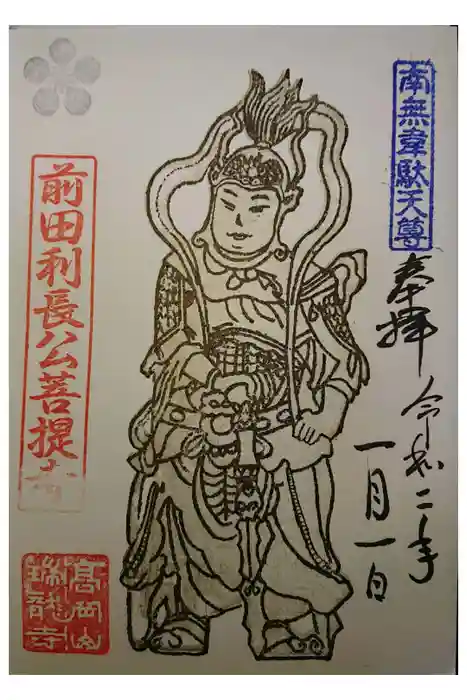 南無韋駄天尊
奉拝
令和二年
一月一日
前田利長公菩提寺
高岡山
瑞龍寺